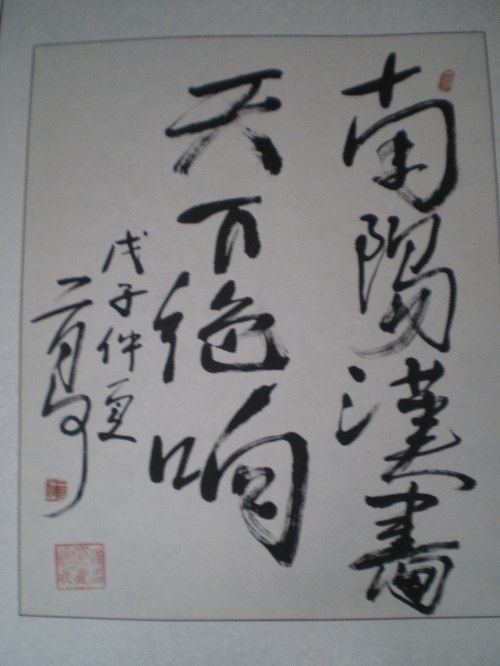 南陽漢畫
天下绝响
戊子仲夏
二月河